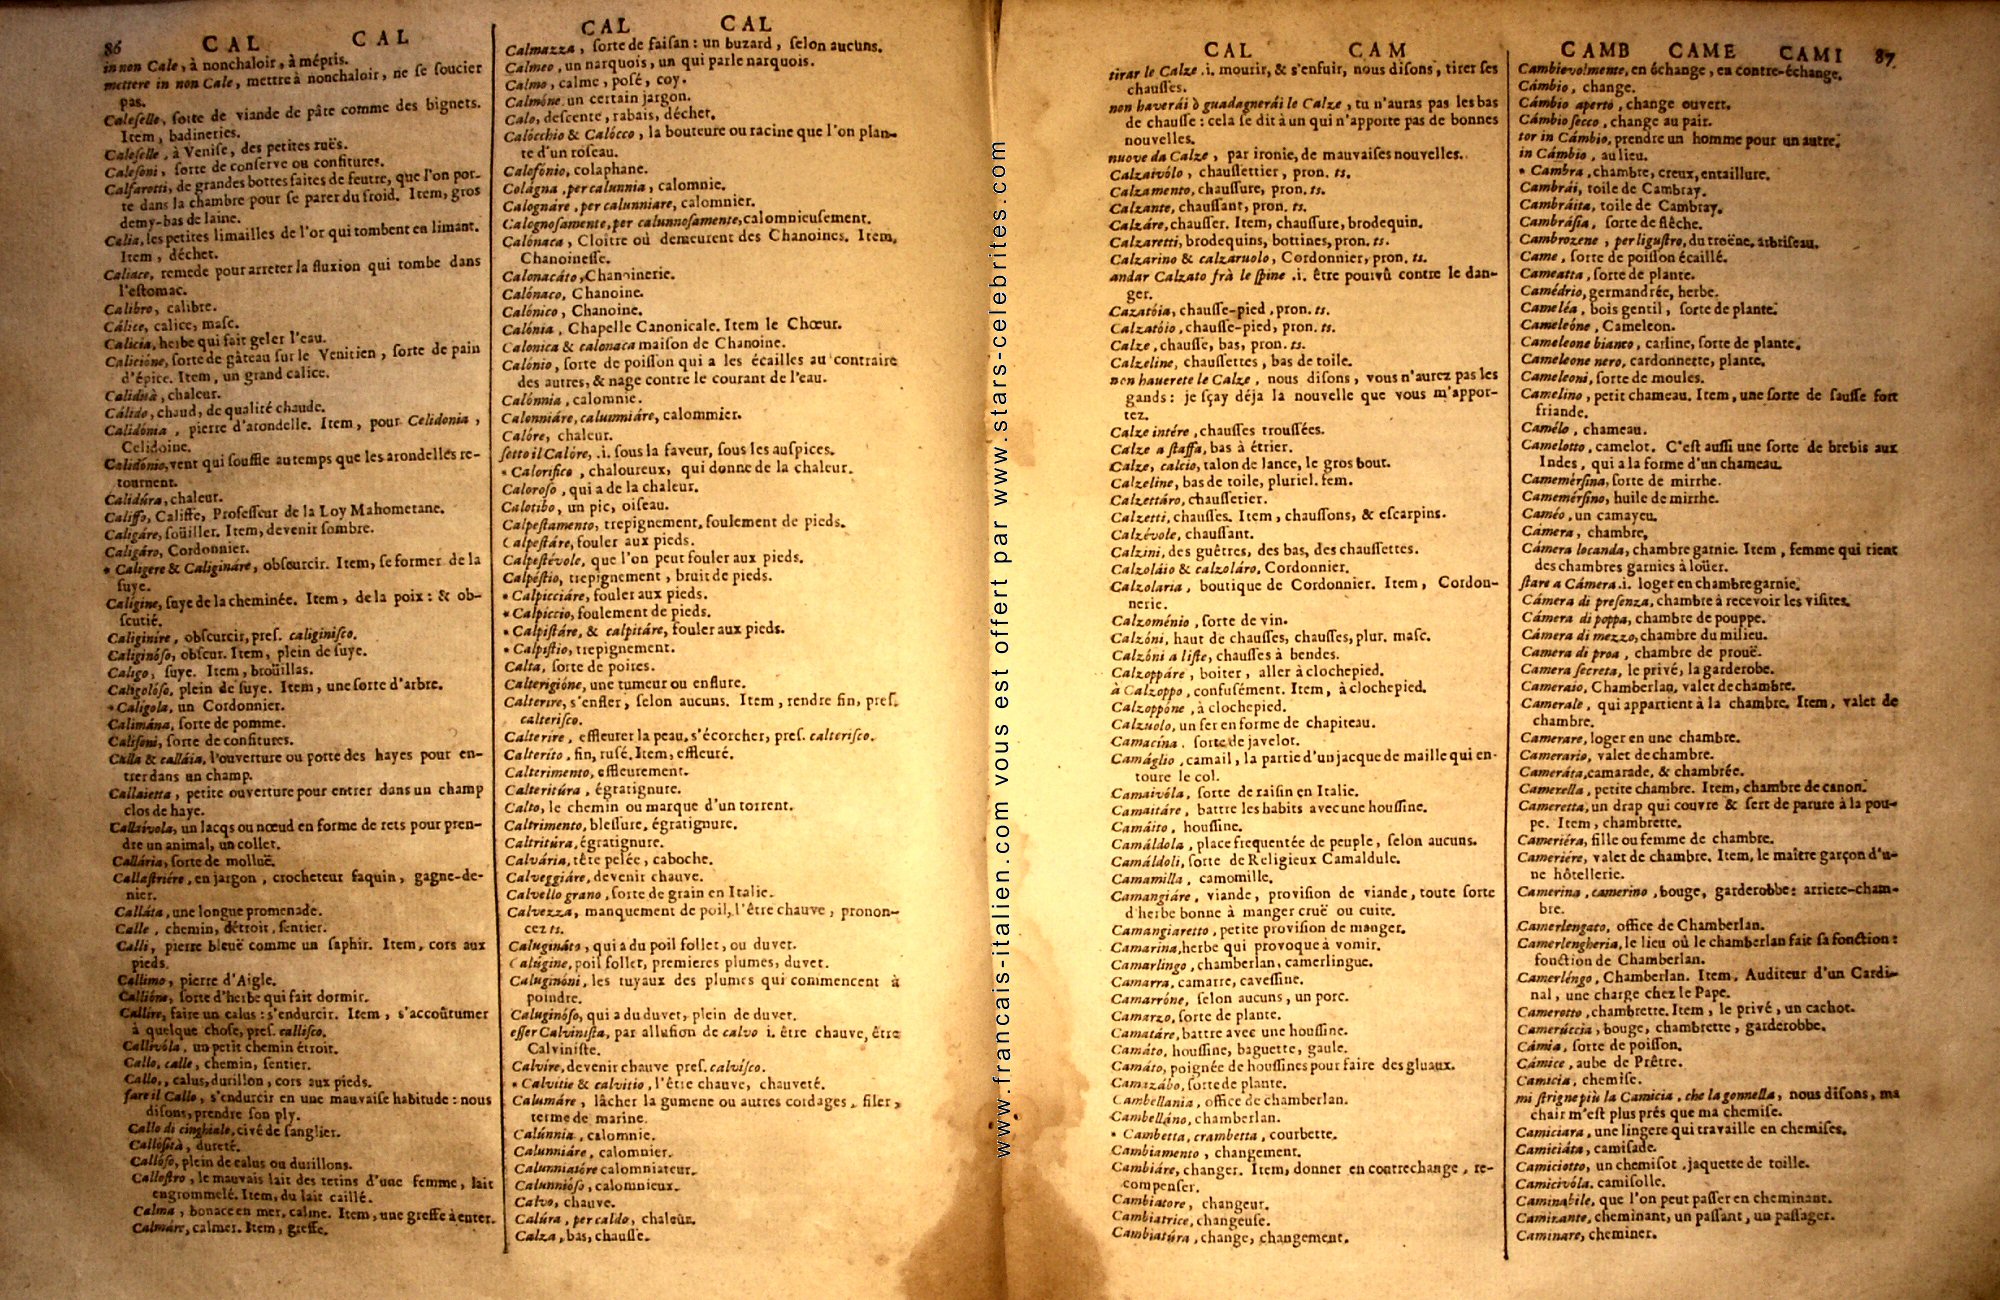 86 CAL CAL
in non Cale, à nonchaloir, à mépris.
mettere in non Cale, mettre à nonchaloir, ne se soucier
pas.
Calefelle, sorte de viande de pâte comme des bignets.
Item, badineries.
Calefelle, à Venise, des petites ruës.
Calefoni, sorte de conserve ou confitures.
Calfarotti, de grandes bottes faites de feutre, que l'on por-
te dans la chambre pour se parer du froid. Item, gros
demy-bas de laine.
Calia, les petites limailles de l'or qui tombent en limant.
Item, déchet.
Caliace, remede pour arreter la fluxion qui tombe dans
l'estomac.
Calibro, calibre.
Cálice, calice, masc.
Calicia, herbe qui fait geler l'eau.
Calicióne, sorte de gâteau sur le Venitien, sorte de pain
d'épice. Item, un grand calice.
Caliduà, chaleur.
Cálido, chaud, de qualité chaude.
Calidónia, pierre d'arondelle. Item, pour Celidonia,
Celidoine.
Calidónio, vent qui souffle au temps que les arondelles re-
tournent.
Calidúra, chaleur.
Califfo, Califfe, Professeur de la Loy Mahometane.
Caligáre, soüiller. Item, devenir sombre.
Caligáro, Cordonnier.
* Caligere & Caliginàre, obscurcir. Item, se former de la
suye.
Caligine, suye de la cheminée. Item, de la poix : & ob-
scutié.
Caliginire, obscurcir, pres. caliginisco.
Caliginóso, obscur. Item, plein de suye.
Caligo, suye. Item, broüillas.
Caligolóso, plein de suye. Item, une sorte d'arbre.
* Caligola, un Cordonnier.
Calimána, sorte de pomme.
Calisoni, sorte de confitures.
Calla & calláia, l'ouverture ou porte des hayes pour en-
trer dans un champ.
Callaietta, petite ouverture pour entrer dans un champ
clos de haye.
Callaivola, un lacqs ou nœud en forme de rets pour pren-
dre un animal, un collet.
Callária, sorte de molluë.
Callastriére, en jargon, crocheteur faquin, gagne-de-
nier.
Calláta, une longue promenade.
Calle, chemin, détroit, sentier.
Calli, pierre bleuë comme un saphir. Item, cors aux
pieds.
Callimo, pierre d'Aigle.
Callióne, sorte d'herbe qui fait dormir.
Callire, faire un calus : s'endurcir. Item, s'accoûtumer
à quelque chose, pres. callisco.
Callivóla, un petit chemin étroit.
Callo, calle, chemin, sentier.
Callo, calus, durillon, cors aux pieds.
fare il Callo, s'endurcir en une mauvaise habitude : nous
disons, prendre son ply.
Callo di cinghiale, civé de sanglier.
Callosità, dureté.
Callóso, plein de calus ou durillons.
Callostro, le mauvais lait des tetins d'une femme, lait
engrommelé. Item, du lait caillé.
Calma, bonace en mer, calme. Item, une greffe à enter.
Calmáre, calmer. Item, greffe.
CAL CAL
Calmazza, sorte de faisan : un buzard, selon aucuns.
Calmeo, un narquois, un qui parle narquois.
Calmo, calme, posé, coy.
Calmóne un certain jargon.
Calo, descente, rabais, déchet.
Calócchio & Calócco, la bouteure ou racine que l'on plan-
te d'un roseau.
Calofónio, colaphane.
Colágna, per calunnia, calomnie.
Calognáre, per calunniare, calomnier.
Calognosamente, per calunnosamente, calomnieusement.
Calónaca, Cloître où demeurent des Chanoines. Item,
Chanoinesse.
Calonacáto, Chanoinerie.
Calónaco, Chanoine.
Calónico, Chanoine.
Calónia, Chapelle Canonicale. Item le Chœur.
Calonica & calonaca maison de Chanoine.
Calónio, sorte de poisson qui a les écailles au contraire
des autres, & nage contre le courant de l'eau.
Calónnia, calomnie.
Calonniáre, calunniáre, calommier.
Calóre, chaleur.
sotto il Calóre, .i. sous la faveur, sous les auspices.
* Calorifico, chaloureux, qui donne de la chaleur.
Caloroso, qui a de la chaleur.
Calotibo, un pic, oiseau.
Calpestamento, trepignement, foulement de pieds.
Calpestáre, fouler aux pieds.
Calpestévole, que l'on peut fouler aux pieds.
Calpéstio, trepignement, bruit de pieds.
* Calpicciáre, fouler aux pieds.
* Calpiccio, foulement de pieds.
* Calpistáre, & calpitáre, fouler aux pieds.
* Calpistio, trepignement.
Calta, sorte de poires.
Calterigióne, une tumeur ou enflure.
Calterire, s'enfler, selon aucuns. Item, rendre fin, pres.
calterisco.
Calterire, effleurer la peau, s'écorcher, pres. calterisco.
Calterito, fin, rusé. Item, effleuré.
Calterimento, effleurement.
Calteritúra, égratignure.
Calto, le chemin ou marque d'un torrent.
Caltrimento, blessure, égratignure.
Caltritúra, égratignure.
Calvária, tête pelée, caboche.
Calveggiáre, devenir chauve.
Calvello grano, sorte de grain en Italie.
Calvezza, manquement de poil, l'être chauve, pronon-
cez ts.
Caluginàto, qui a du poil follet, ou duvet.
Calúgine, poil follet, premieres plumes, duvet.
Caluginóni, les tuyaux des plumes qui commencent à
poindre.
Caluginóso, qui a du duvet, plein de duvet.
esser Calvinista, par allusion de calvo i. être chauve, être
Calviniste.
Calvire, devenir chauve pres. calvisco.
* Calvitie & calvitio, l'être chauve, chauveté.
Calumáre, lâcher la gumene ou autres cordages, filer,
terme de marine.
Calúnnia, calomnie.
Calunniáre, calomnier.
Calunniatóre calomniateur.
Calunnióso, calomnieux.
Calvo, chauve.
Calúra, per caldo, chaleur.
Calza, bas, chausse.
CAL CAM
tirar le Calze .i. mourir, & s'enfuir, nous disons, tirer ses
chausses.
non haverái ò guadagnerái le Calze, tu n'auras pas les bas
de chausse : cela se dit à un qui n'apporte pas de bonnes
nouvelles.
nuove da Calze, par ironie, de mauvaises nouvelles.
Calzaivólo, chaussettier, pron. ts.
Calzamento, chaussure, pron. ts.
Calzante, chaussant, pron. ts.
Calzáre, chausser. Item, chaussure, brodequin.
Calzaretti, brodequins, bottines, pron. ts.
Calzarino & calzaruolo, Cordonnier, pron. ts.
andar Calzato frà le spine .i. être pourvû contre le dan-
ger.
Cazatóia, chausse-pied, pron. ts.
Calzatóio, chausse-pied, pron. ts.
Calze, chausse, bas, pron. ts.
Calzeline, chaussettes, bas de toile.
non hauerete le Calze, nous disons, vous n'aurez pas les
gands : je sçay déja la nouvelle que vous m'appor-
tez.
Calze intére, chausses troussées.
Calze a staffa, bas à étrier.
Calze, calcio, talon de lance, le gros bout.
Calzeline, bas de toile, pluriel. fem.
Calzettáro, chaussetier.
Calzetti, chausses. Item, chaussons, & escarpins.
Calzévole, chaussant.
Calzini, des guêtres, des bas, des chaussettes.
Calzoláio & calzoláro, Cordonnier.
Calzolaria, boutique de Cordonnier. Item, Cordon-
nerie.
Calzoménio, sorte de vin.
Calzóni, haut de chausses, chausses, plur. masc.
Calzóni a liste, chausses à bendes.
Calzoppáre, boiter, aller à clochepied.
à Calzoppo, confusément. Item, à clochepied.
Calzoppóne, à clochepied.
Calzuolo, un fer en forme de chapiteau.
Camacina, sorte de javelot.
Camáglio, camail, la partie d'un jacque de maille qui en-
toure le col.
Camaivóla, sorte de raisin en Italie.
Camaitáre, battre les habits avec une houssine.
Camáito, houssine.
Camáldola, place frequentée de peuple, selon aucuns.
Camáldoli, sorte de Religieux Camaldule.
Camamilla, camomille.
Camangiáre, viande, provision de viande, toute sorte
d'herbe bonne à manger cruë ou cuite.
Camangiaretto, petite provision de manger.
Camarina, herbe qui provoque à vomir.
Camarlingo, chamberlan, camerlingue.
Camarra, camarre, cavessine.
Camarróne, selon aucuns, un porc.
Camarzo, sorte de plante.
Camatáre, battre avec une houssine.
Camáto, houssine, baguette, gaule.
Camáto, poignée de houssines pour faire des gluaux.
Camazábo, sorte de plante.
Cambellania, office de chamberlan.
Cambelláno, chamberlan.
* Cambetta, crambetta, courbette.
Cambiamento, changement.
Cambiáre, changer. Item, donner en contrechange, re-
compenser.
Cambiatore, changeur.
Cambiatrice, changeuse.
Cambiatúra, change, changement.
CAMB CAME CAMI 87
Cambievolmente, en échange, en contre-échange.
Cámbio, change.
Cámbio aperto, change ouvert.
Cámbio secco, change au pair.
tor in Cámbio, prendre un homme pour un autre.
in Cámbio, au lieu.
* Cambra, chambre, creux, entaillure.
Cambrái, toile de Cambray.
Cambráita, toile de Cambray.
Cambrásia, sorte de flêche.
Cambrozene, per ligustro, du troëne, arbriseau.
Came, sorte de poisson écaillé.
Cameatta, sorte de plante.
Camédrio, germandrée, herbe.
Cameléa, bois gentil, sorte de plante.
Cameleóne, Cameleon.
Cameleone bianco, carline, sorte de plante.
Cameleone nero, cardonnette, plante.
Cameleoni, sorte de moules.
Camelino, petit chameau. Item, une sorte de sausse fort
friande.
Camélo, chameau.
Camelotto, camelot. C'est aussi une sorte de brebis aux
Indes, qui a la forme d'un chameau.
Camemérsina, sorte de mirrhe.
Camemérsino, huile de mirrhe.
Caméo, un camayeu.
Cámera, chambre.
Cámera locanda, chambre garnie. Item, femme qui tient
des chambres garnies à loüer.
stare a Cámera .i. loger en chambre garnie.
Cámera di presenza, chambre à recevoir les visites.
Cámera di poppa, chambre de pouppe.
Cámera di mezzo, chambre du milieu.
Camera di proa, chambre de prouë.
Camera secreta, le privé, la garderobe.
Cameraio, Chamberlan, valet de chambre.
Camerale, qui appartient à la chambre. Item, valet de
chambre.
Camerare, loger en une chambre.
Camerario, valet de chambre.
Cameráta, camarade, & chambrée.
Camerella, petite chambre. Item, chambre de canon.
Cameretta, un drap qui couvre & sert de parure à la pou-
pe. Item, chambrette.
Cameriéra, fille ou femme de chambre.
Cameriére, valet de chambre. Item, le maître garçon d'u-
ne hôtellerie.
Camerina, camerino, bouge, garderobbe : arriere-cham-
bre.
Camerlengato, office de Chamberlan.
Camerlengheria, le lieu où le chamberlan fait sa fonction :
fonction de Chamberlan.
Camerléngo, Chamberlan. Item, Auditeur d'un Cardi-
nal, une charge chez le Pape.
Camerotto, chambrette. Item, le privé, un cachot.
Camerúccia, bouge, chambrette, garderobbe.
Cámia, sorte de poisson.
Cámice, aube de Prêtre.
Camicia, chemise.
mi strigne più la Camicia, che la gonnella, nous disons, ma
chair m'est plus prés que ma chemise.
Camiciara, une lingere qui travaille en chemises.
Camiciáta, camisade.
Camiciotto, un chemisot, jaquette de toille.
Camicivóla, camisolle.
Caminabile, que l'on peut passer en cheminant.
Caminante, cheminant, un passant, un passager.
Caminare, cheminer.
www.francais-italien.com vous est offert par www.stars-celebrites.com